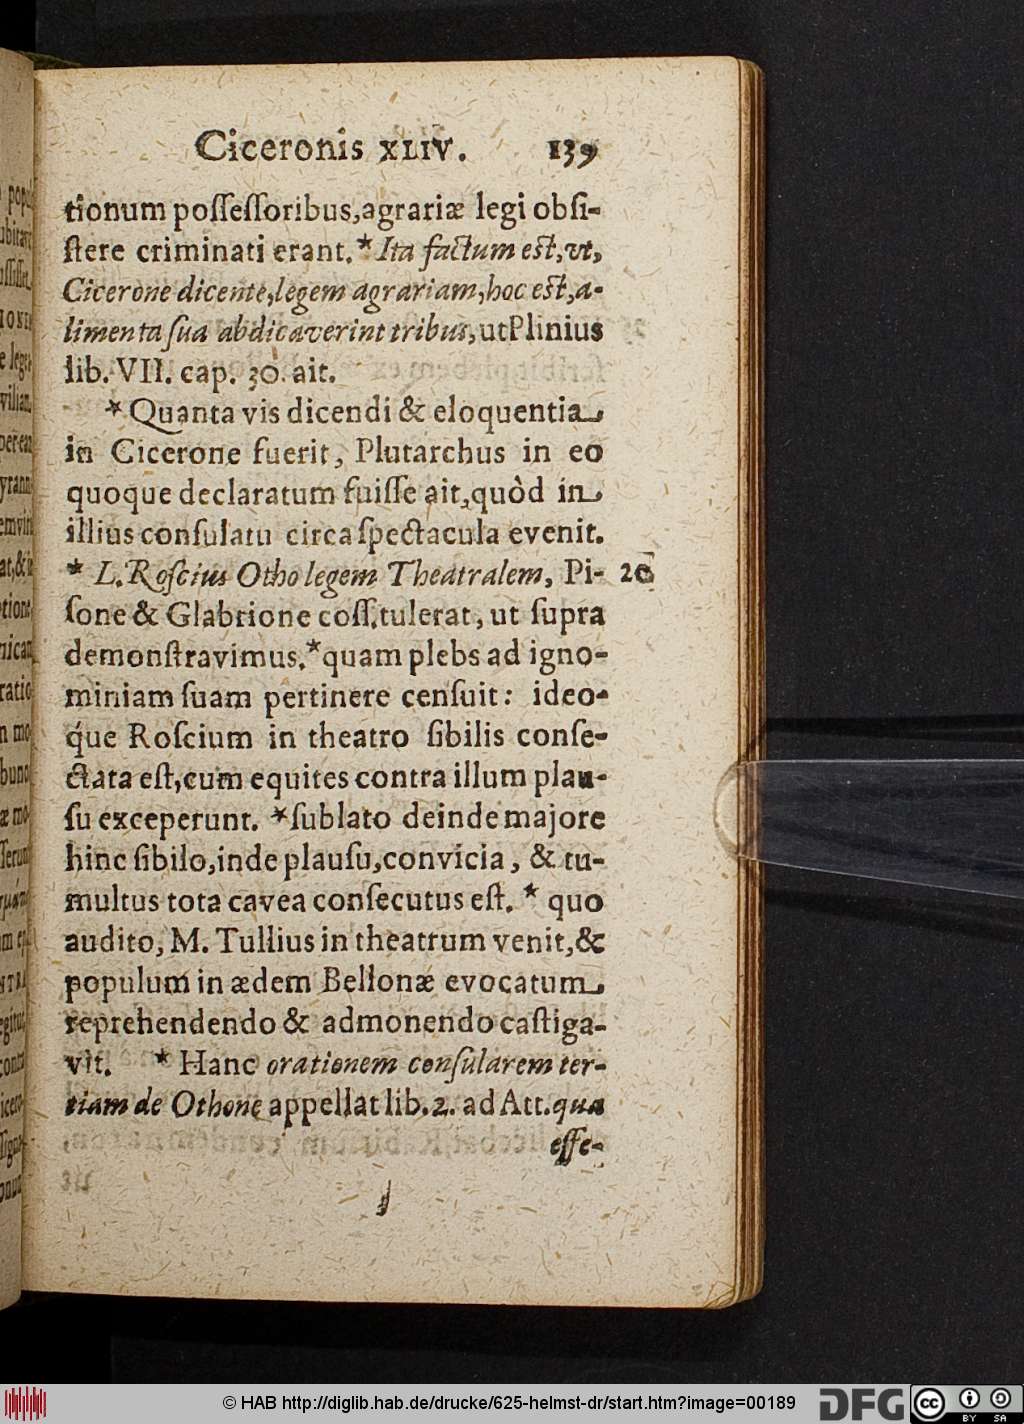 Ciceronis XLIV. 139
tionum poſſeſſoribus,agrariæ legi obſi-
ſtere criminati erant.* Ita factum eſt,vt,
Cicerone dicente,legem agrariam,hoc eſt,a-
limenta ſua abdicaverint tribus, utPlinius
lib. VII. cap. 30. ait.
* Quanta vis dicendi & eloquentia
in Cicerone fuerit, Plutarchus in eo
quoque declaratum fuiſſe ait,quòd in
illius conſulatu circa ſpectacula evenit.
* L. Roſcius Otho legem Theatralem, Pi- 20
ſone & Glabrione coſſ.tulerat, ut ſupra
demonſtravimus.* quam plebs ad igno-
miniam ſuam pertinere cenſuit: ideo-
q́ue Roſcium in theatro ſibilis conſe-
ctata eſt,cum equites contra illum plau-
ſu exceperunt. * ſublato deinde majore
hinc ſibilo,inde plauſu,convicia, & tu-
multus tota cavea conſecutus eſt. * quo
audito, M. Tullius in theatrum venit,&
populum in ædem Bellonæ evocatum
reprehendendo & admonendo caſtiga-
vit. * Hanc orationem conſularem ter-
tiam de Othone appellat lib.2. ad Att. qua
eſſe-
© HAB http://diglib.hab.de/drucke/625-helmst-dr/start.htm?image=00189
DFG
cc BY SA